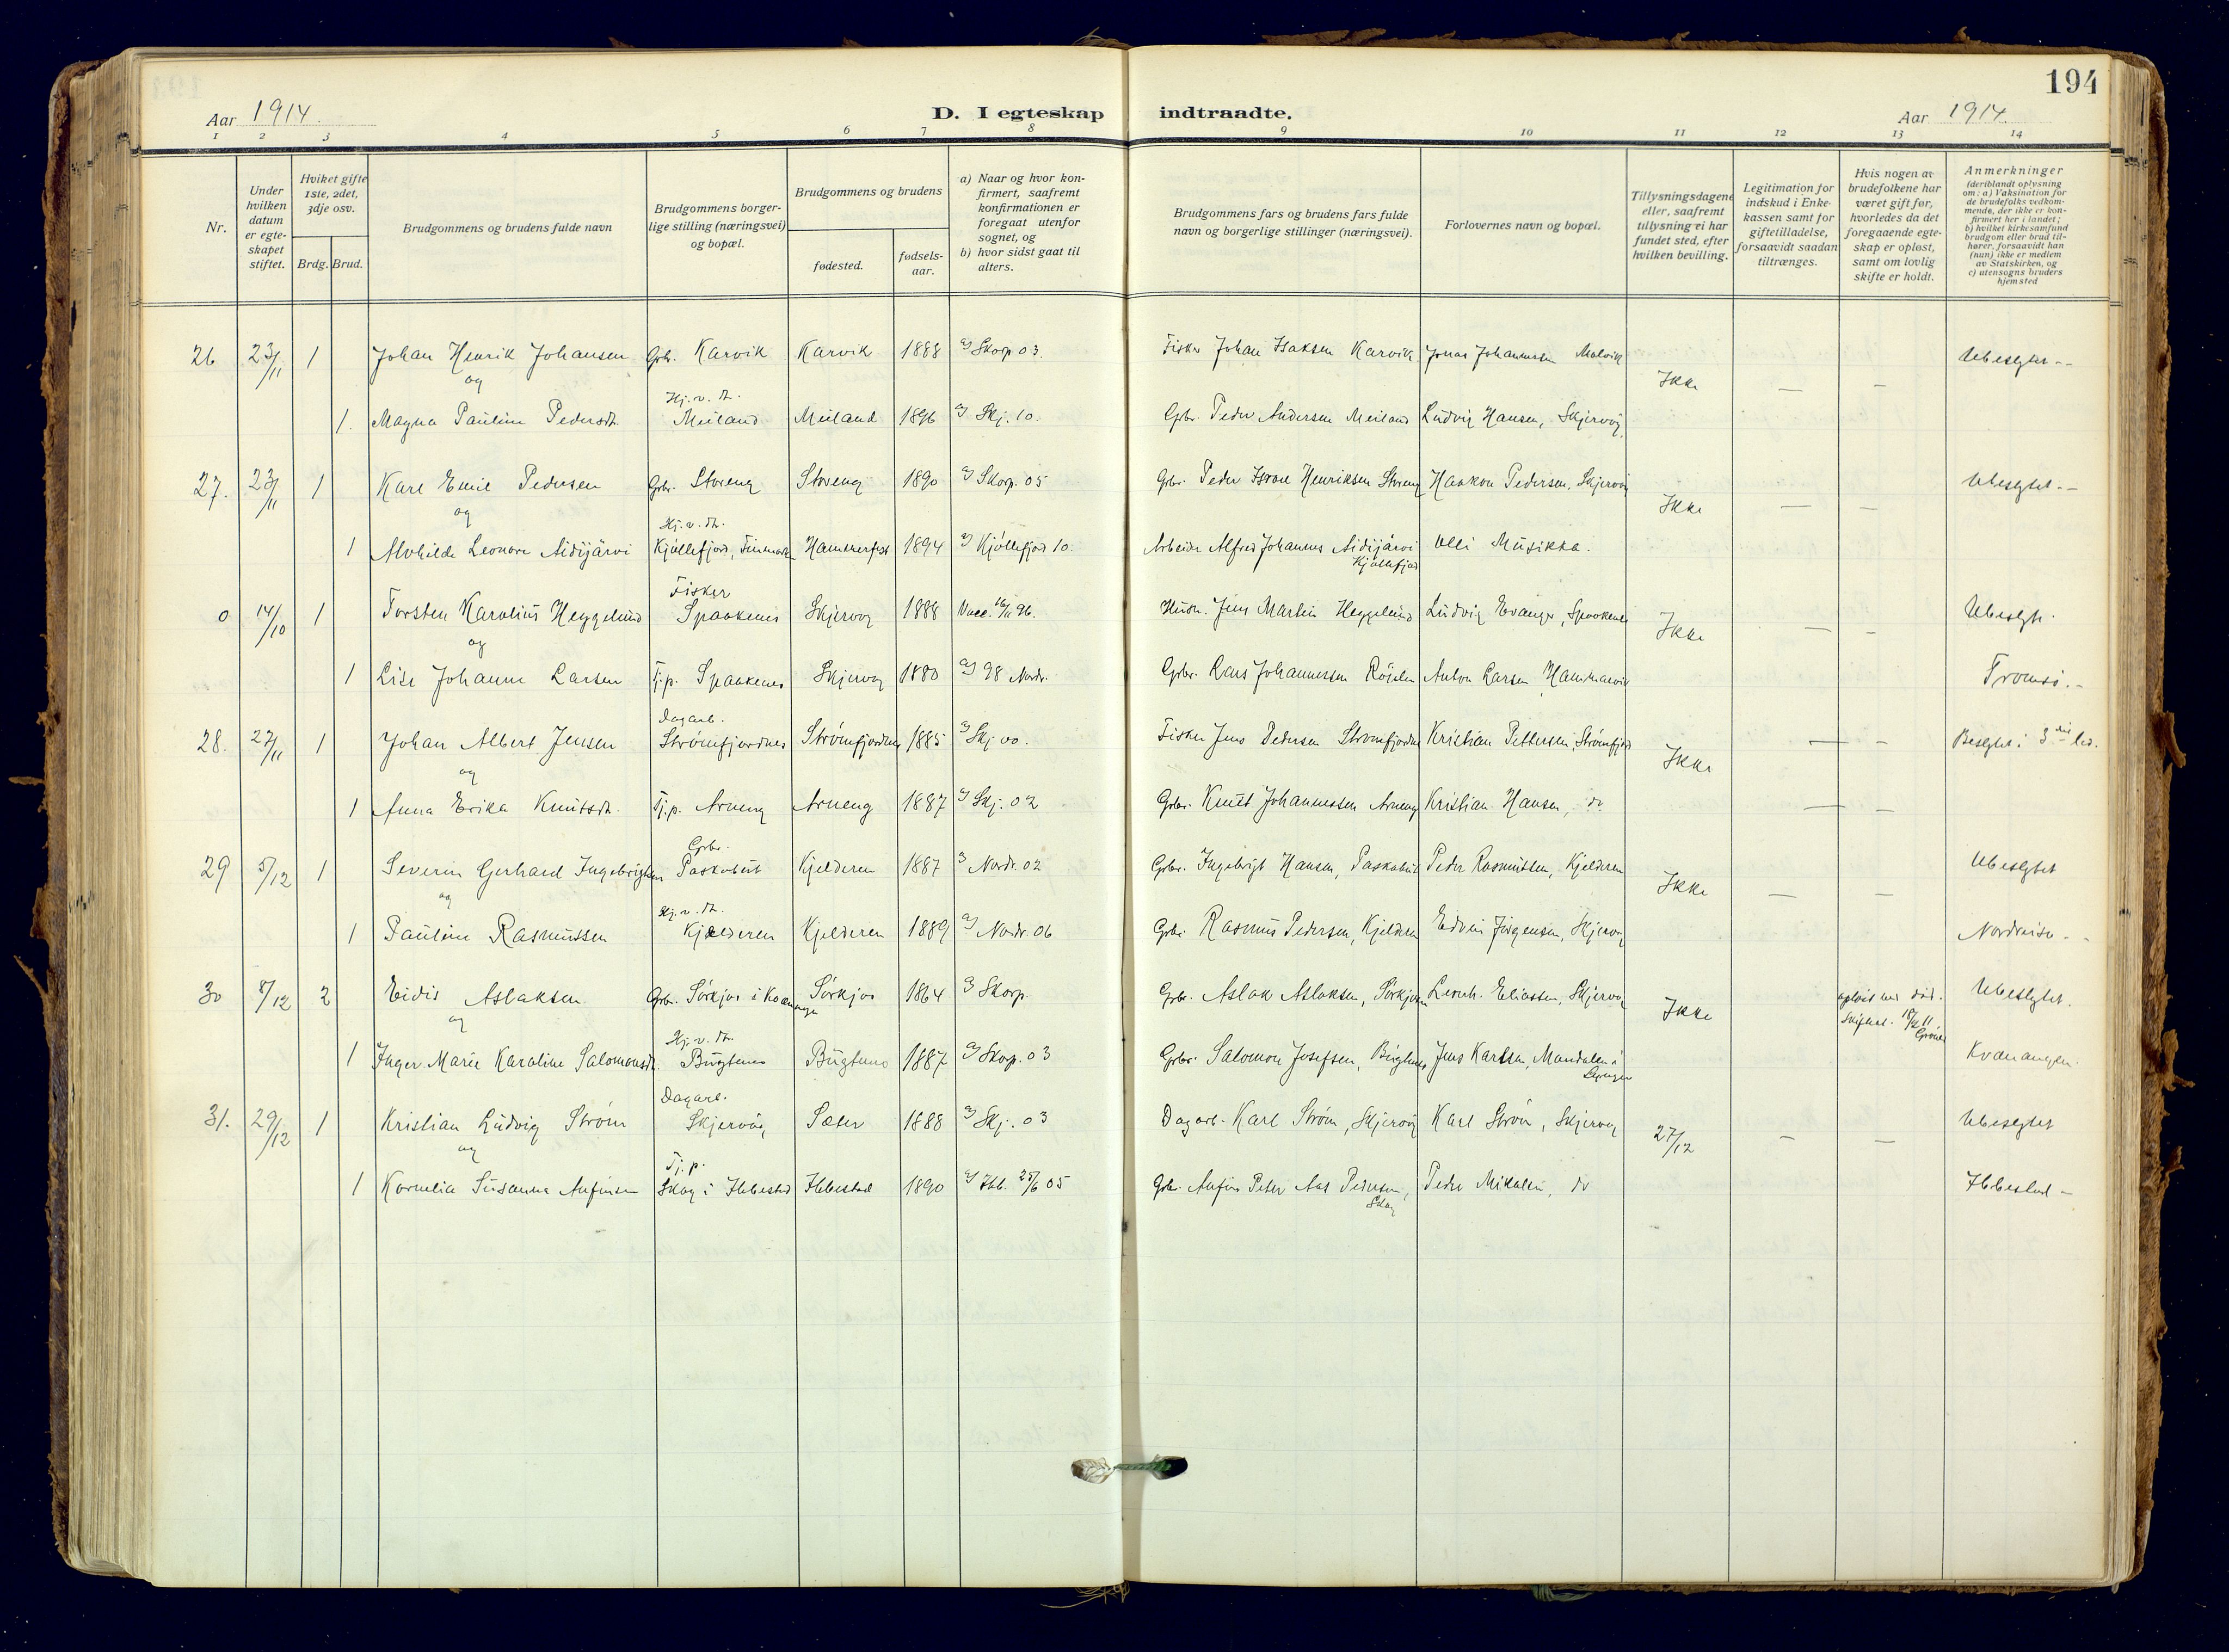 194
Aar 1914. D. I egteskap indtraadte. Aar 1914.
1 2 3 4 5 6 7 8 9 10 11 12 13 14
Nr.
Under hvilken datum er egteskapet stiftet.
Hviket gifte 1ste, 2det, 3dje osv.
Brdg. Brud.
Brudgommens og brudens fulde navn
Brudgommens borgerlige stilling (næringsvei) og bopæl.
Brudgommens og brudens
fødested.
fødselsaar.
a) Naar og hvor konfirmert, saafremt konfirmationen er foregaat utenfor sognet, og
b) hvor sidst gaat til alters.
Brudgommens fars og brudens fars fulde navn og borgerlige stillinger (næringsvei).
Forlovernes navn og bopæl.
Tillysningsdagene eller, saafremt tillysning ei har fundet sted, efter hvilken bevilling.
Legitimation for indskud i Enkekassen samt for giftetilladelse, forsaavidt saadan tiltrænges.
Hvis nogen av brudefolkene har været gift før, hvorledes da det foregaaende egteskap er opløst, samt om lovlig skifte er holdt.
Anmerkninger (deriblandt oplysning om: a) Vaksination for de brudefolks vedkommende, der ikke er konfirmert her i landet; b) hvilket kirkesamfund brudgom eller brud tilhører, forsaavidt han (hun) ikke er medlem av Statskirken, og c) utensogns bruders hjemsted
26 23/11 1 Johan Henrik Johansen Grbr. Karvik Karvik 1888 a) Skorp 03. Fisker Johan Isaksen Karvik Jonas Johannessen Malvik Ikke — — Ubeslgtet --
og
1. Magna Pauline Pedersdt. Hj.v.dt. Meiland Meiland 1896 a) Skj. 10. Grbr. Peder Andersen Meiland Ludvig Hansen, Skjervøy.
27. 23/11 1 Karl Emil Pedersen Grbr. Storeng Storeng 1890 a) Skorp. 05 Grbr. Peder Henriksen Storeng Haakon Pedersen, Skjervøy Ikke — — Ubeslgtet. -
og
1 Alvhilde Leonore Aidijärvi Hj.v.dt. Kjøllefjord, Finmarken Hammerfest 1894 a) Kjøllefjord 10. Arbeider Alfred Johannes Aidijärvi Kjøllefjord Olli Musikka.
0 14/10 1 Torsten Karolius Heggelund Fisker Spaakenes Skjervøy 1888 Vacc. 16/11 96. Husm. Jens Martin Heggelund Ludvig Evanger, Spaakenes Ikke — — Ubeslgt.
og
1 Lise Johanne Larsen Tj.p. Spaakenes Skjervøy 1880 a) 98 Nordr. Grbr. Lars Johannessen Røjelen Anton Larsen Hammarvik Tromsø. -
28. 27/11 1 Johan Albert Jensen Dagarb. Strømfjordnes Strømfjordnes 1885 a) Skj 00. Fisker Jens Pedersen Strømfjordnes Kristian Pettersen, Strømfjord Ikke — — Beslgtet i 3die led.
og
1 Anna Erika Knutsdt. Tj.p. Arneng Arneng 1887 a) Skj. 02 Grbr. Knut Johannessen Arneng Kristian Hansen, do — —
29 5/12 1 Severin Gerhard Ingebrigtsen Grbr. Paskabut Kjelderen 1887 a) Nordr. 02 Grbr. Ingebrigt Hansen, Paskabut Peder Rasmussen, Kjelderen Ikke — — Ubeslgtet
og
1 Pauline Rasmussen Hj.v.dt. Kjelderen Kjelderen 1889 a) Nordr. 06 Grbr. Rasmus Pedersen, Kjelderen Edvin Jørgensen, Skjervøy Nordreisa. -
30 8/12 2 Eidis Aslaksen Grbr. Sørkjos i Kvænangen Sørkjos 1864 a) Skorp. Grbr. Aslak Aslaksen, Sørkjosen Leonh. Eliassen, Skjervøy Ikke opløst ved død. Skiftet. Ubeslgtet.
og
1 Inger Marie Karoline Salomonsdt. Hj.v.dt. Bugtenes Bugtenes 1887 a) Skorp. 03 Grbr. Salomon Josefsen, Bugtenes Jens Karlsen, Mandalen i Lyngen Kvænangen.
31. 29/12 1 Kristian Ludvig Strøm Dagarb. Skjervøy Sæter 1888 a) Skj. 03 Dagarb. Karl Strøm, Skjervøy Karl Strøm, Skjervøy 27/12 — — Ubeslgtet
og
1 Kornelia Susanna Anfinsen Tj.p. Skog i Ibbestad Ibbestad 1890 a) Ibb. 25/6 05 Grbr. Anfin Peter Aas Pedersen, Skog Peder Mikalsen, do Ibbestad -